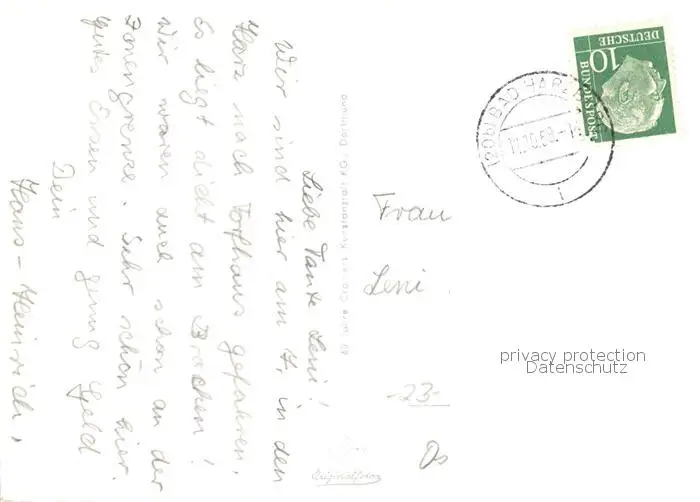 Liebe Tante Leni!
Wir sind hier am 7. in den
Harz nach Torfhaus gefahren.
Es liegt dicht am Brocken!
Wir waren auch schon an der
Zonengrenze. Sehr schön hier.
Gutes Essen und genug Geld
Dein
Hans-Heinrich,
Cramers Kunstanstalt KG, Dortmund
Frau
Leni
-23-
Originalfoto
10
DEUTSCHE
BUNDESPOST
(20b) BAD HARZ
privacy protection
Datenschutz